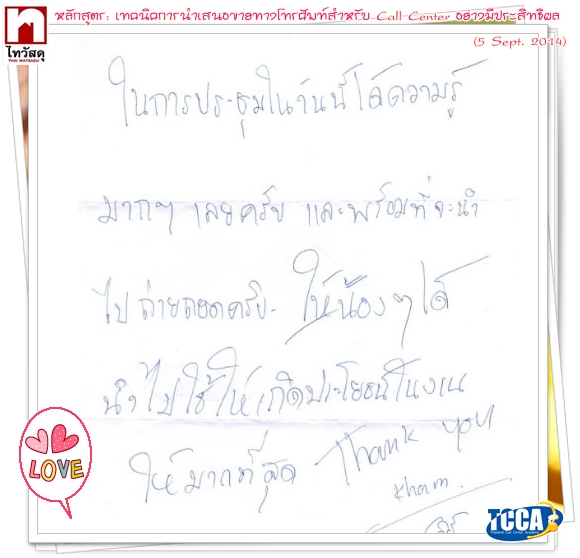 หลักสูตร: เทคนิคการนำเสนอขายทางโทรศัพท์สำหรับ Call Center อย่างมีประสิทธิผล
(5 Sept. 2014)
ไทวัสดุ
THAI WATSADU
ในการประชุมในวันนี้ได้ความรู้
มากๆ เลยครับ และพร้อมที่จะนำ
ไปถ่ายทอดครับ ให้น้องๆได้
นำไปใช้ให้เกิดประโยชน์ในงาน
ให้มากที่สุด Thank you
LOVE
TCCA